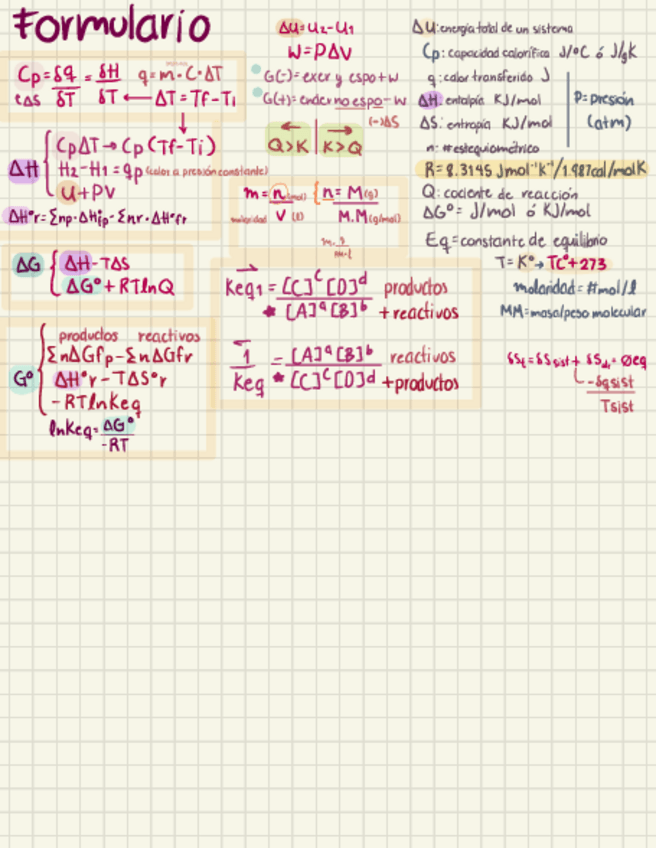 Formulario
Cp = δq/δT = δH/δT
q = m · C · ΔT
ΔT = Tf - Ti
ΔH { CpΔT → Cp (Tf - Ti)
H2 - H1 = qp (calor a presión constante)
U + PV
ΔH°r = Σnp · ΔH°fp - Σnr · ΔH°fr
ΔG { ΔH - TΔS
ΔG° + RTlnQ
productos reactivos
ΣnΔGfp - ΣnΔGfr
G° { ΔH°r - TΔS°r
-RTlnKeq
lnKeq = ΔG°/-RT
ΔU = U2 - U1
W = PΔV
G(-) = exer y espo + w
G(+) = ender no espo - w
(-)ΔS
← →
Q > K | K > Q
m = n (mol) / V (l) { n = M (g) / M.M (g/mol)
molaridad
Keq1 = [C]ᶜ [D]ᵈ productos
* [A]ᵃ [B]ᵇ + reactivos
1/Keq = [A]ᵃ [B]ᵇ reactivos
* [C]ᶜ [D]ᵈ + productos
ΔU: energía total de un sistema
Cp: capacidad calorífica J/°C ó J/gK
q: calor transferido J
ΔH: entalpía KJ/mol
P = presión
ΔS: entropía KJ/mol
(atm)
n: #estequiométrico
R = 8.3145 Jmol⁻¹K⁻¹/1.987cal/molK
Q: cociente de reacción
ΔG° = J/mol ó KJ/mol
Eq = constante de equilibrio
T = K° → TC° + 273
molaridad = #mol/l
MM = masa/peso molecular
δSt = δSsist + δSalr = 0eq
-δqsist
Tsist